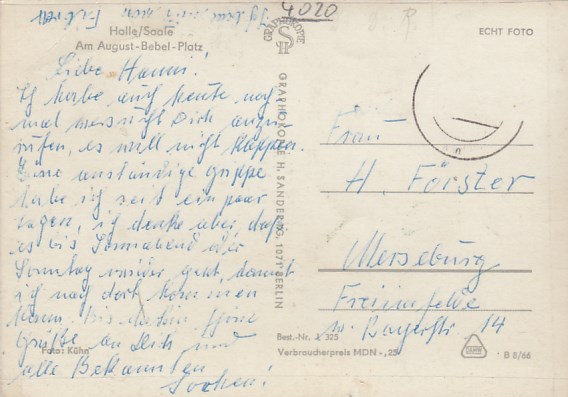 4020
Halle/Saale
Am August-Bebel-Platz
GRAPHOKOPIE
H S
ECHT FOTO
Liebe Hanni!
Ich habe auch heute noch
mal versucht Dich anzu
rufen, es will nicht klappen.
Eine anständige Grippe
habe ich seit ein paar
Tagen, ich denke aber, daß
es bis Sonnabend oder
Sonntag wieder geht, damit
ich nach dort kommen
kann. Bis dahin
Grüße an Dich und
alle Bekannten
GRAPHOKOPIE H. SANDER KG. 1071 BERLIN
Frau
H. Förster
Merseburg
Freiimfelde
14
Foto: Kühn
Best.-Nr. L 325
Verbraucherpreis MDN -,25
B 8/66